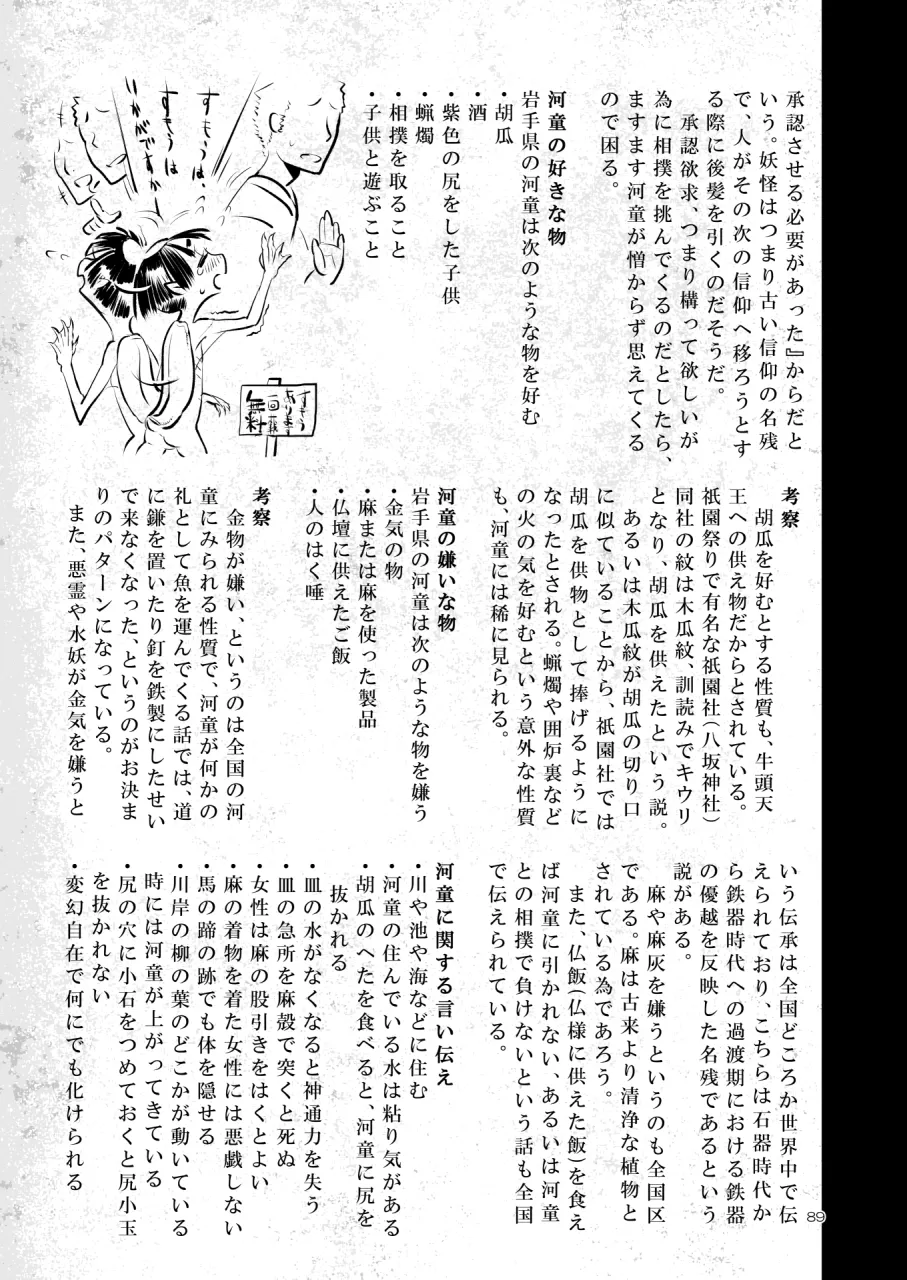 承認させる必要があった』からだと
いう。妖怪はつまり古い信仰の名残
で、人がその次の信仰へ移ろうとす
る際に後髪を引くのだそうだ。
承認欲求、つまり構って欲しいが
為に相撲を挑んでくるのだとしたら、
ますます河童が憎からず思えてくる
ので困る。
河童の好きな物
岩手県の河童は次のような物を好む
・胡瓜
・酒
・紫色の尻をした子供
・蝋燭
・相撲を取ること
・子供と遊ぶこと
すもうは、
すもうは
いかがですか
すもう
あります
一回
無料
考察
胡瓜を好むとする性質も、牛頭天
王への供え物だからとされている。
祇園祭りで有名な祇園社（八坂神社）
同社の紋は木瓜紋、訓読みでキウリ
となり、胡瓜を供えたという説。
あるいは木瓜紋が胡瓜の切り口
に似ていることから、祇園社では
胡瓜を供物として捧げるように
なったとされる。蝋燭や囲炉裏など
の火の気を好むという意外な性質
も、河童には稀に見られる。
河童の嫌いな物
岩手県の河童は次のような物を嫌う
・金気の物
・麻または麻を使った製品
・仏壇に供えたご飯
・人のはく唾
考察
金物が嫌い、というのは全国の河
童にみられる性質で、河童が何かの
礼として魚を運んでくる話では、道
に鎌を置いたり釘を鉄製にしたせい
で来なくなった、というのがお決ま
りのパターンになっている。
また、悪霊や水妖が金気を嫌うと
いう伝承は全国どころか世界中で伝
えられており、こちらは石器時代か
ら鉄器時代への過渡期における鉄器
の優越を反映した名残であるという
説がある。
麻や麻灰を嫌うというのも全国区
である。麻は古来より清浄な植物と
されている為であろう。
また、仏飯（仏様に供えた飯）を食え
ば河童に引かれない、あるいは河童
との相撲で負けないという話も全国
で伝えられている。
河童に関する言い伝え
・川や池や海などに住む
・河童の住んでいる水は粘り気がある
・胡瓜のへたを食べると、河童に尻を
抜かれる
・皿の水がなくなると神通力を失う
・皿の急所を麻殻で突くと死ぬ
・女性は麻の股引きをはくとよい
・麻の着物を着た女性には悪戯しない
・馬の蹄の跡でも体を隠せる
・川岸の柳の葉のどこかが動いている
時には河童が上がってきている
・尻の穴に小石をつめておくと尻小玉
を抜かれない
・変幻自在で何にでも化けられる
89